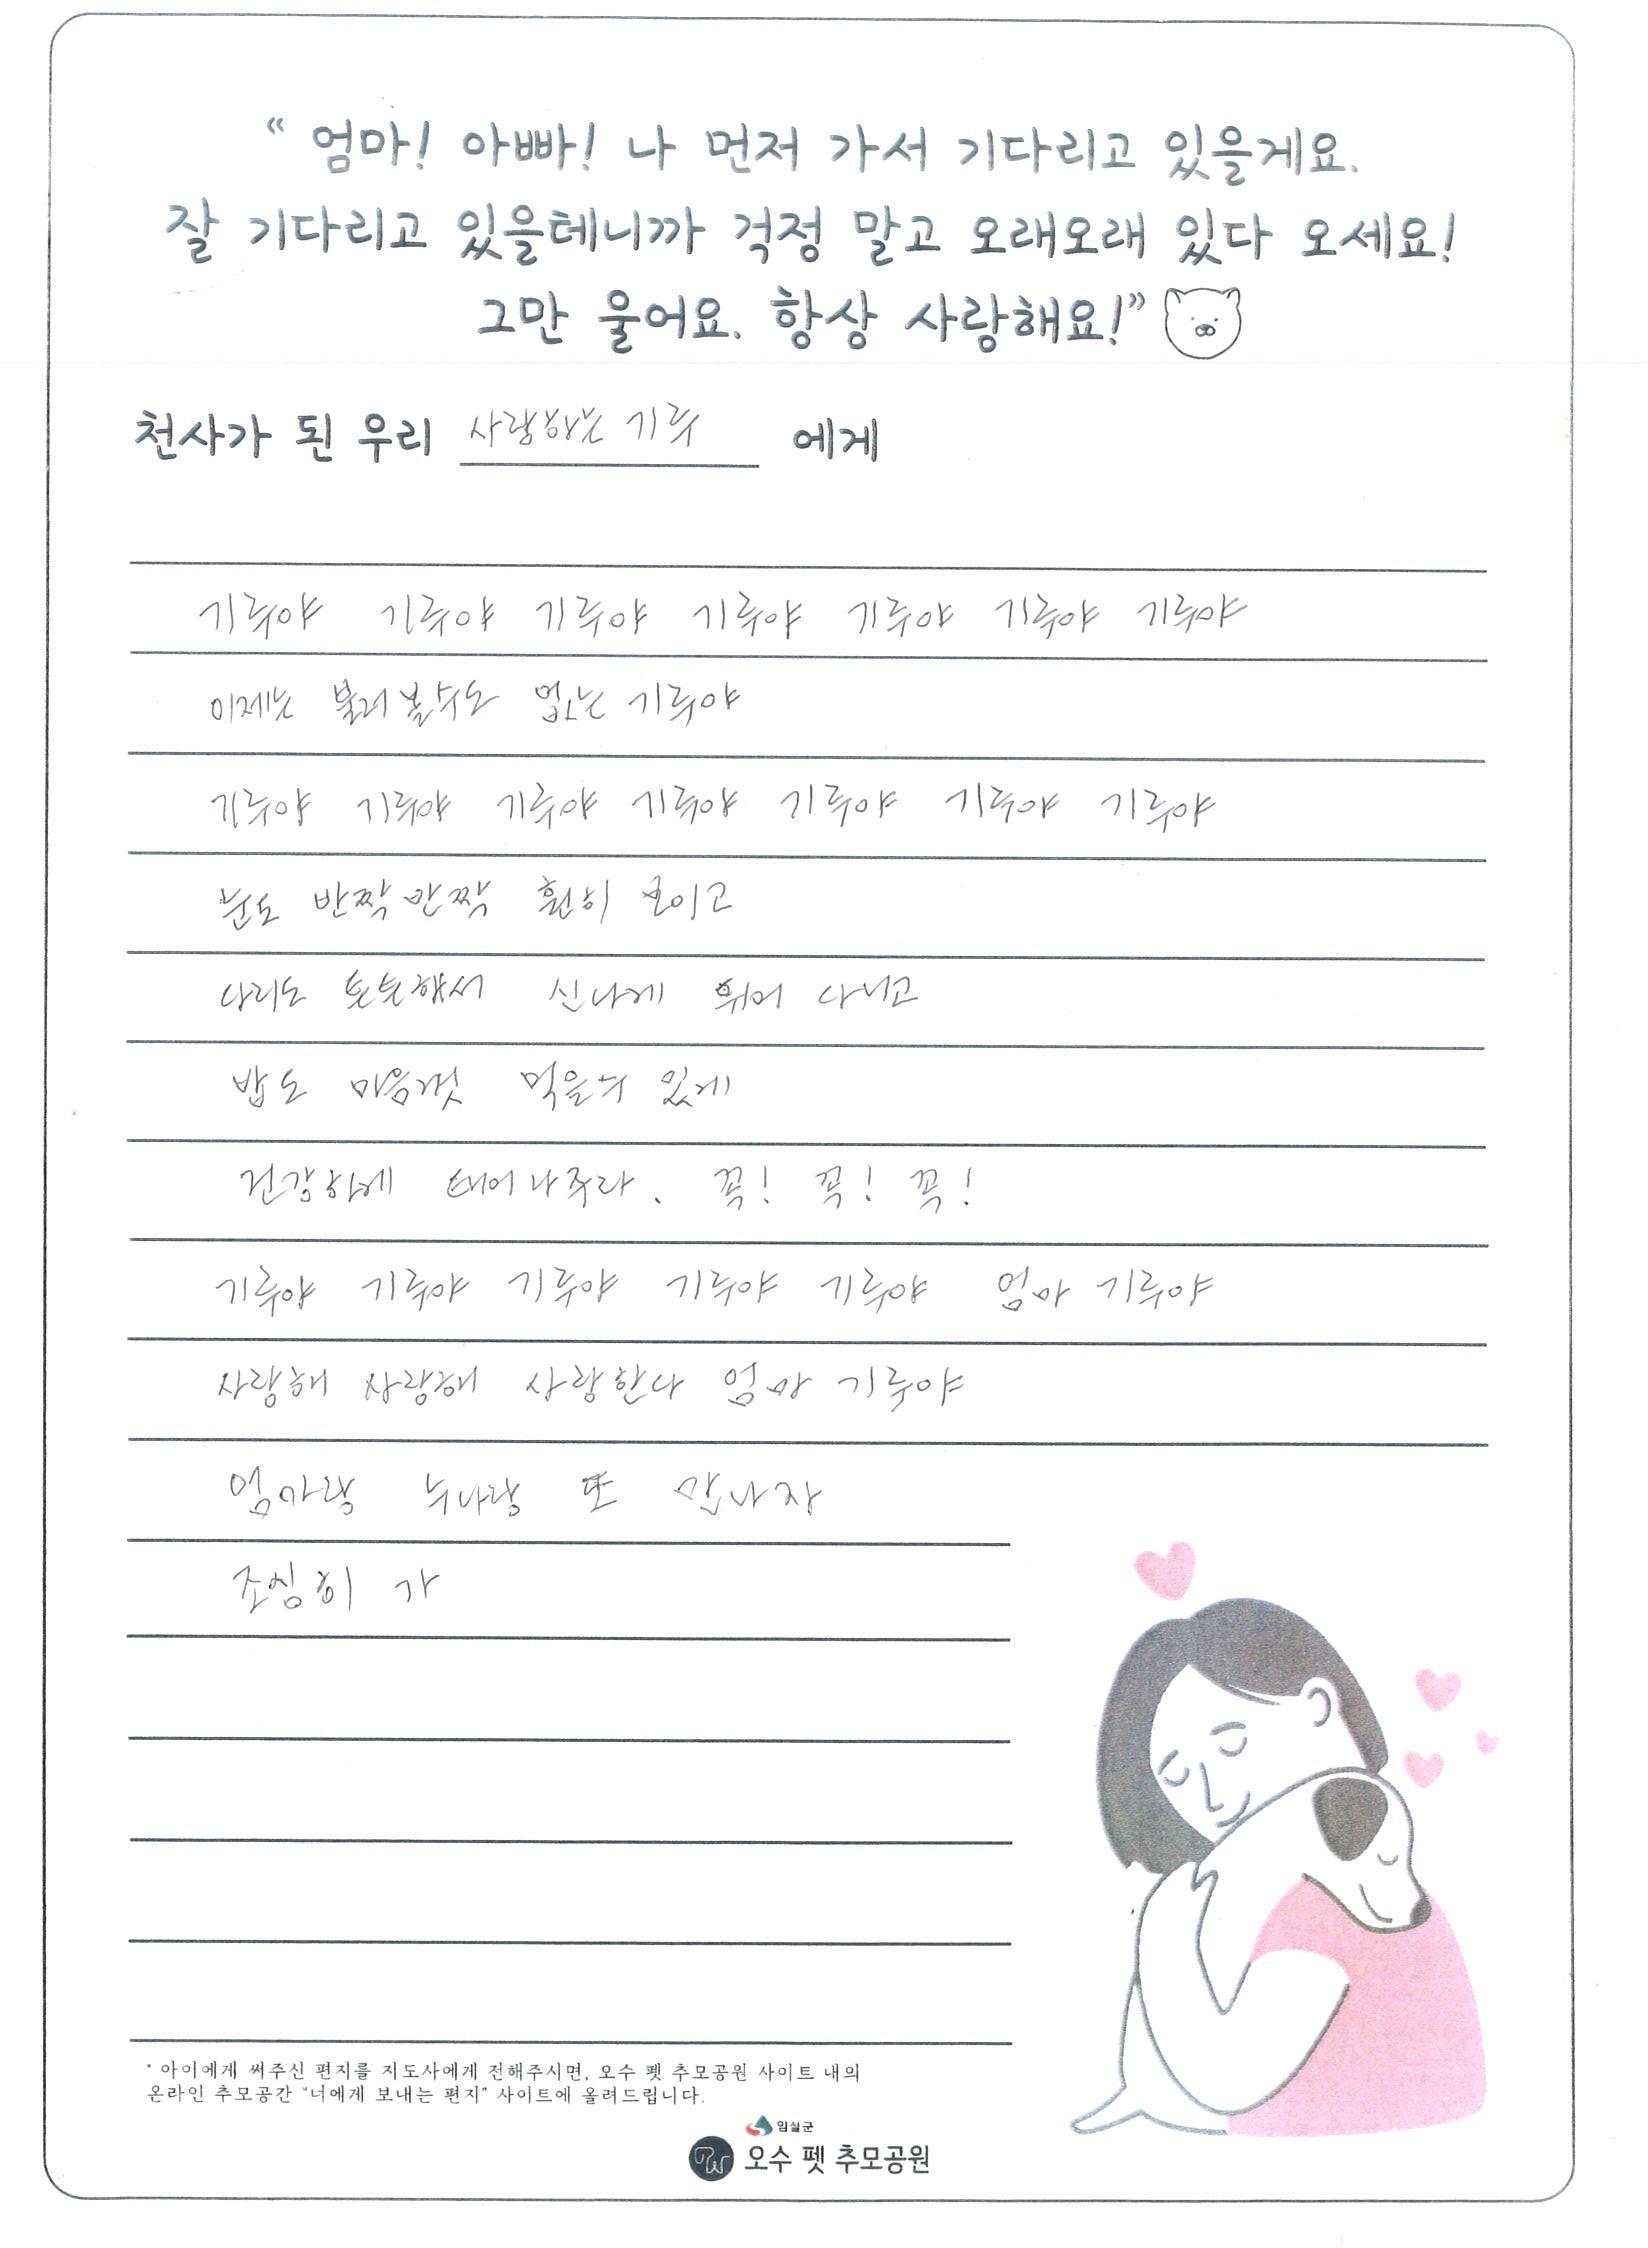 “ 엄마! 아빠! 나 먼저 가서 기다리고 있을게요.
잘 기다리고 있을테니까 걱정 말고 오래오래 있다 오세요!
그만 울어요. 항상 사랑해요!”
천사가 된 우리 사랑하는 기루 에게
기루야 기루야 기루야 기루야 기루야 기루야 기루야
이제는 불러볼수도 없는 기루야
기루야 기루야 기루야 기루야 기루야 기루야 기루야
눈도 반짝반짝 훤히 보이고
다리도 튼튼해서 신나게 뛰어 다니고
밥도 마음껏 먹을수 있게
건강하게 태어나주라. 꼭! 꼭! 꼭!
기루야 기루야 기루야 기루야 기루야 엄마 기루야
사랑해 사랑해 사랑한다 엄마 기루야
엄마랑 누나랑 또 만나자
조심히 가
* 아이에게 써주신 편지를 지도사에게 전해주시면, 오수 펫 추모공원 사이트 내의
온라인 추모공간 “너에게 보내는 편지” 사이트에 올려드립니다.
임실군
PW 오수 펫 추모공원